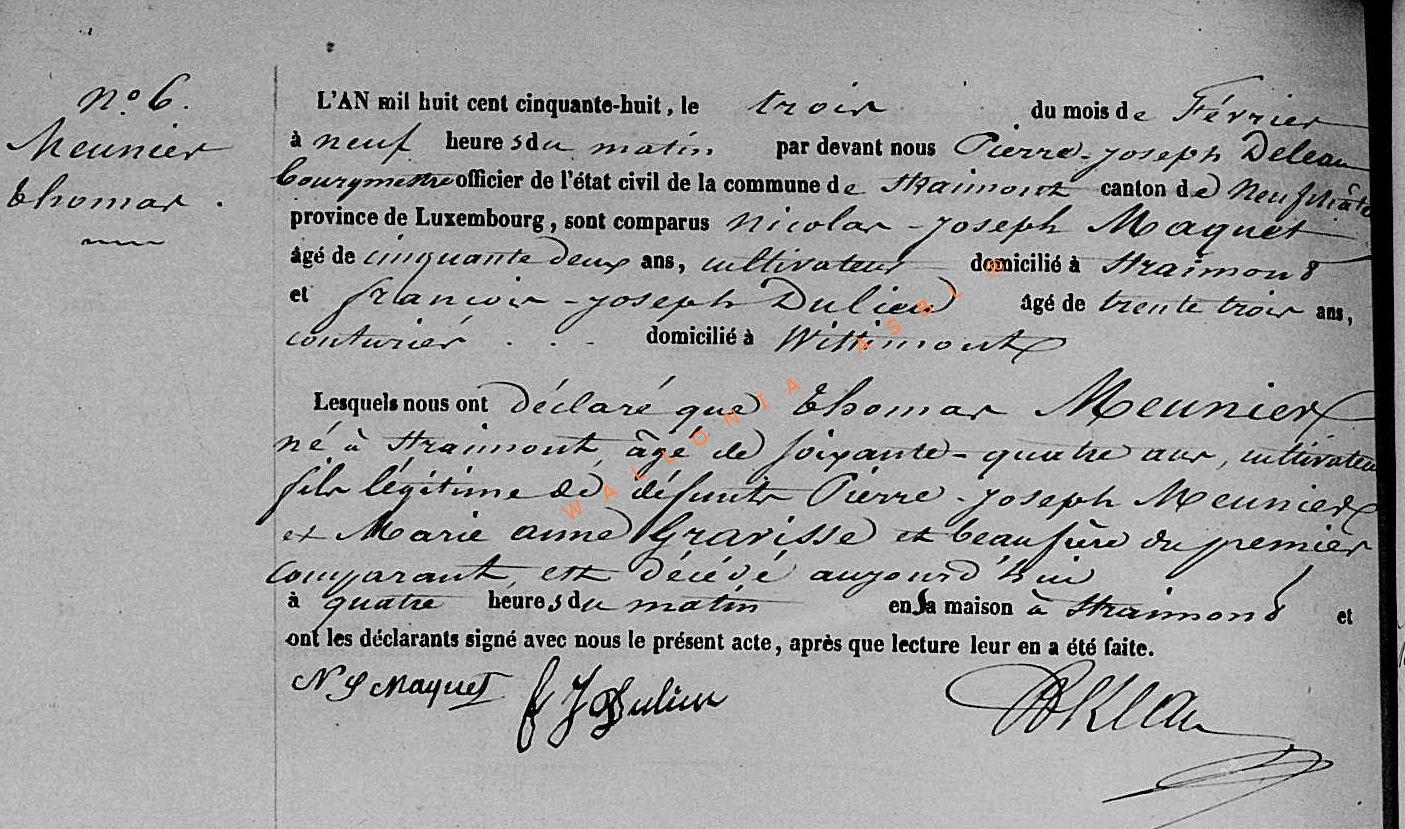 n° 6.
Meunier
Thomas.
L'AN mil huit cent cinquante-huit, le trois du mois de Février
à neuf heures du matin par devant nous Pierre-Joseph Deleau
Bourgmestre officier de l'état civil de la commune de Straimont canton de Neufchâteau
province de Luxembourg, sont comparus Nicolas-Joseph Maquet
âgé de cinquante deux ans, cultivateur domicilié à Straimont
et françois-Joseph Dulieu âgé de trente trois ans,
couturier . . - domicilié à Wittimont
Lesquels nous ont déclaré que Thomas Meunier
né à Straimont, âgé de soixante-quatre ans, cultivateur
fils légitime de défunts Pierre-Joseph Meunier
et Marie anne Gravisse et beaufrère du premier
comparant, est décédé aujourd'hui
à quatre heures du matin en sa maison à Straimont et
ont les déclarants signé avec nous le présent acte, après que lecture leur en a été faite.
N J Maquet F J Dulieu
WALLONIA ASBL ©